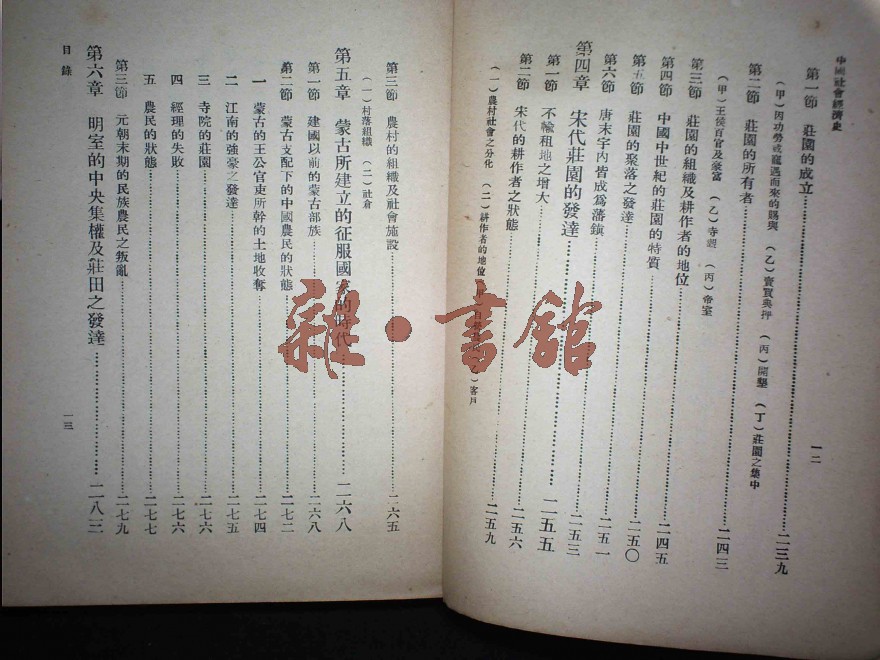 中國社會經濟史
一二
第一節 莊園的成立……二三九
(甲)因功勞或寵遇而來的賜與 (乙)賣買與押 (丙)開墾 (丁)莊園之集中
第二節 莊園的所有者……二四三
(甲)王侯百官及豪富 (乙)寺觀 (丙)帝室
第三節 莊園的組織及耕作者的地位……二四五
第四節 中國中世紀的莊園的特質……二五〇
第五節 莊園的聚落之發達……二五一
第六節 唐末字內皆成爲藩鎮……二五三
第四章 宋代莊園的發達……二五五
第一節 不輸租地之增大……二五六
第二節 宋代的耕作者之狀態……二五九
(一)農村社會之分化 (二)耕作者的地位 客戶
第三節 農村的組織及社會施設……二六五
(一)村落組織 (二)社倉
第五章 蒙古所建立的征服國家的時代……二六八
第一節 建國以前的蒙古部族……二六八
第二節 蒙古支配下的中國農民的狀態……二七二
一 蒙古的王公官吏所幹的土地收奪……二七四
二 江南的強豪之發達……二七五
三 寺院的莊園……二七六
四 經理的失敗……二七六
五 農民的狀態……二七七
第三節 元朝末期的民族農民之叛亂……二七九
第六章 明室的中央集權及莊田之發達……二八三
目錄
一三
雜·書館